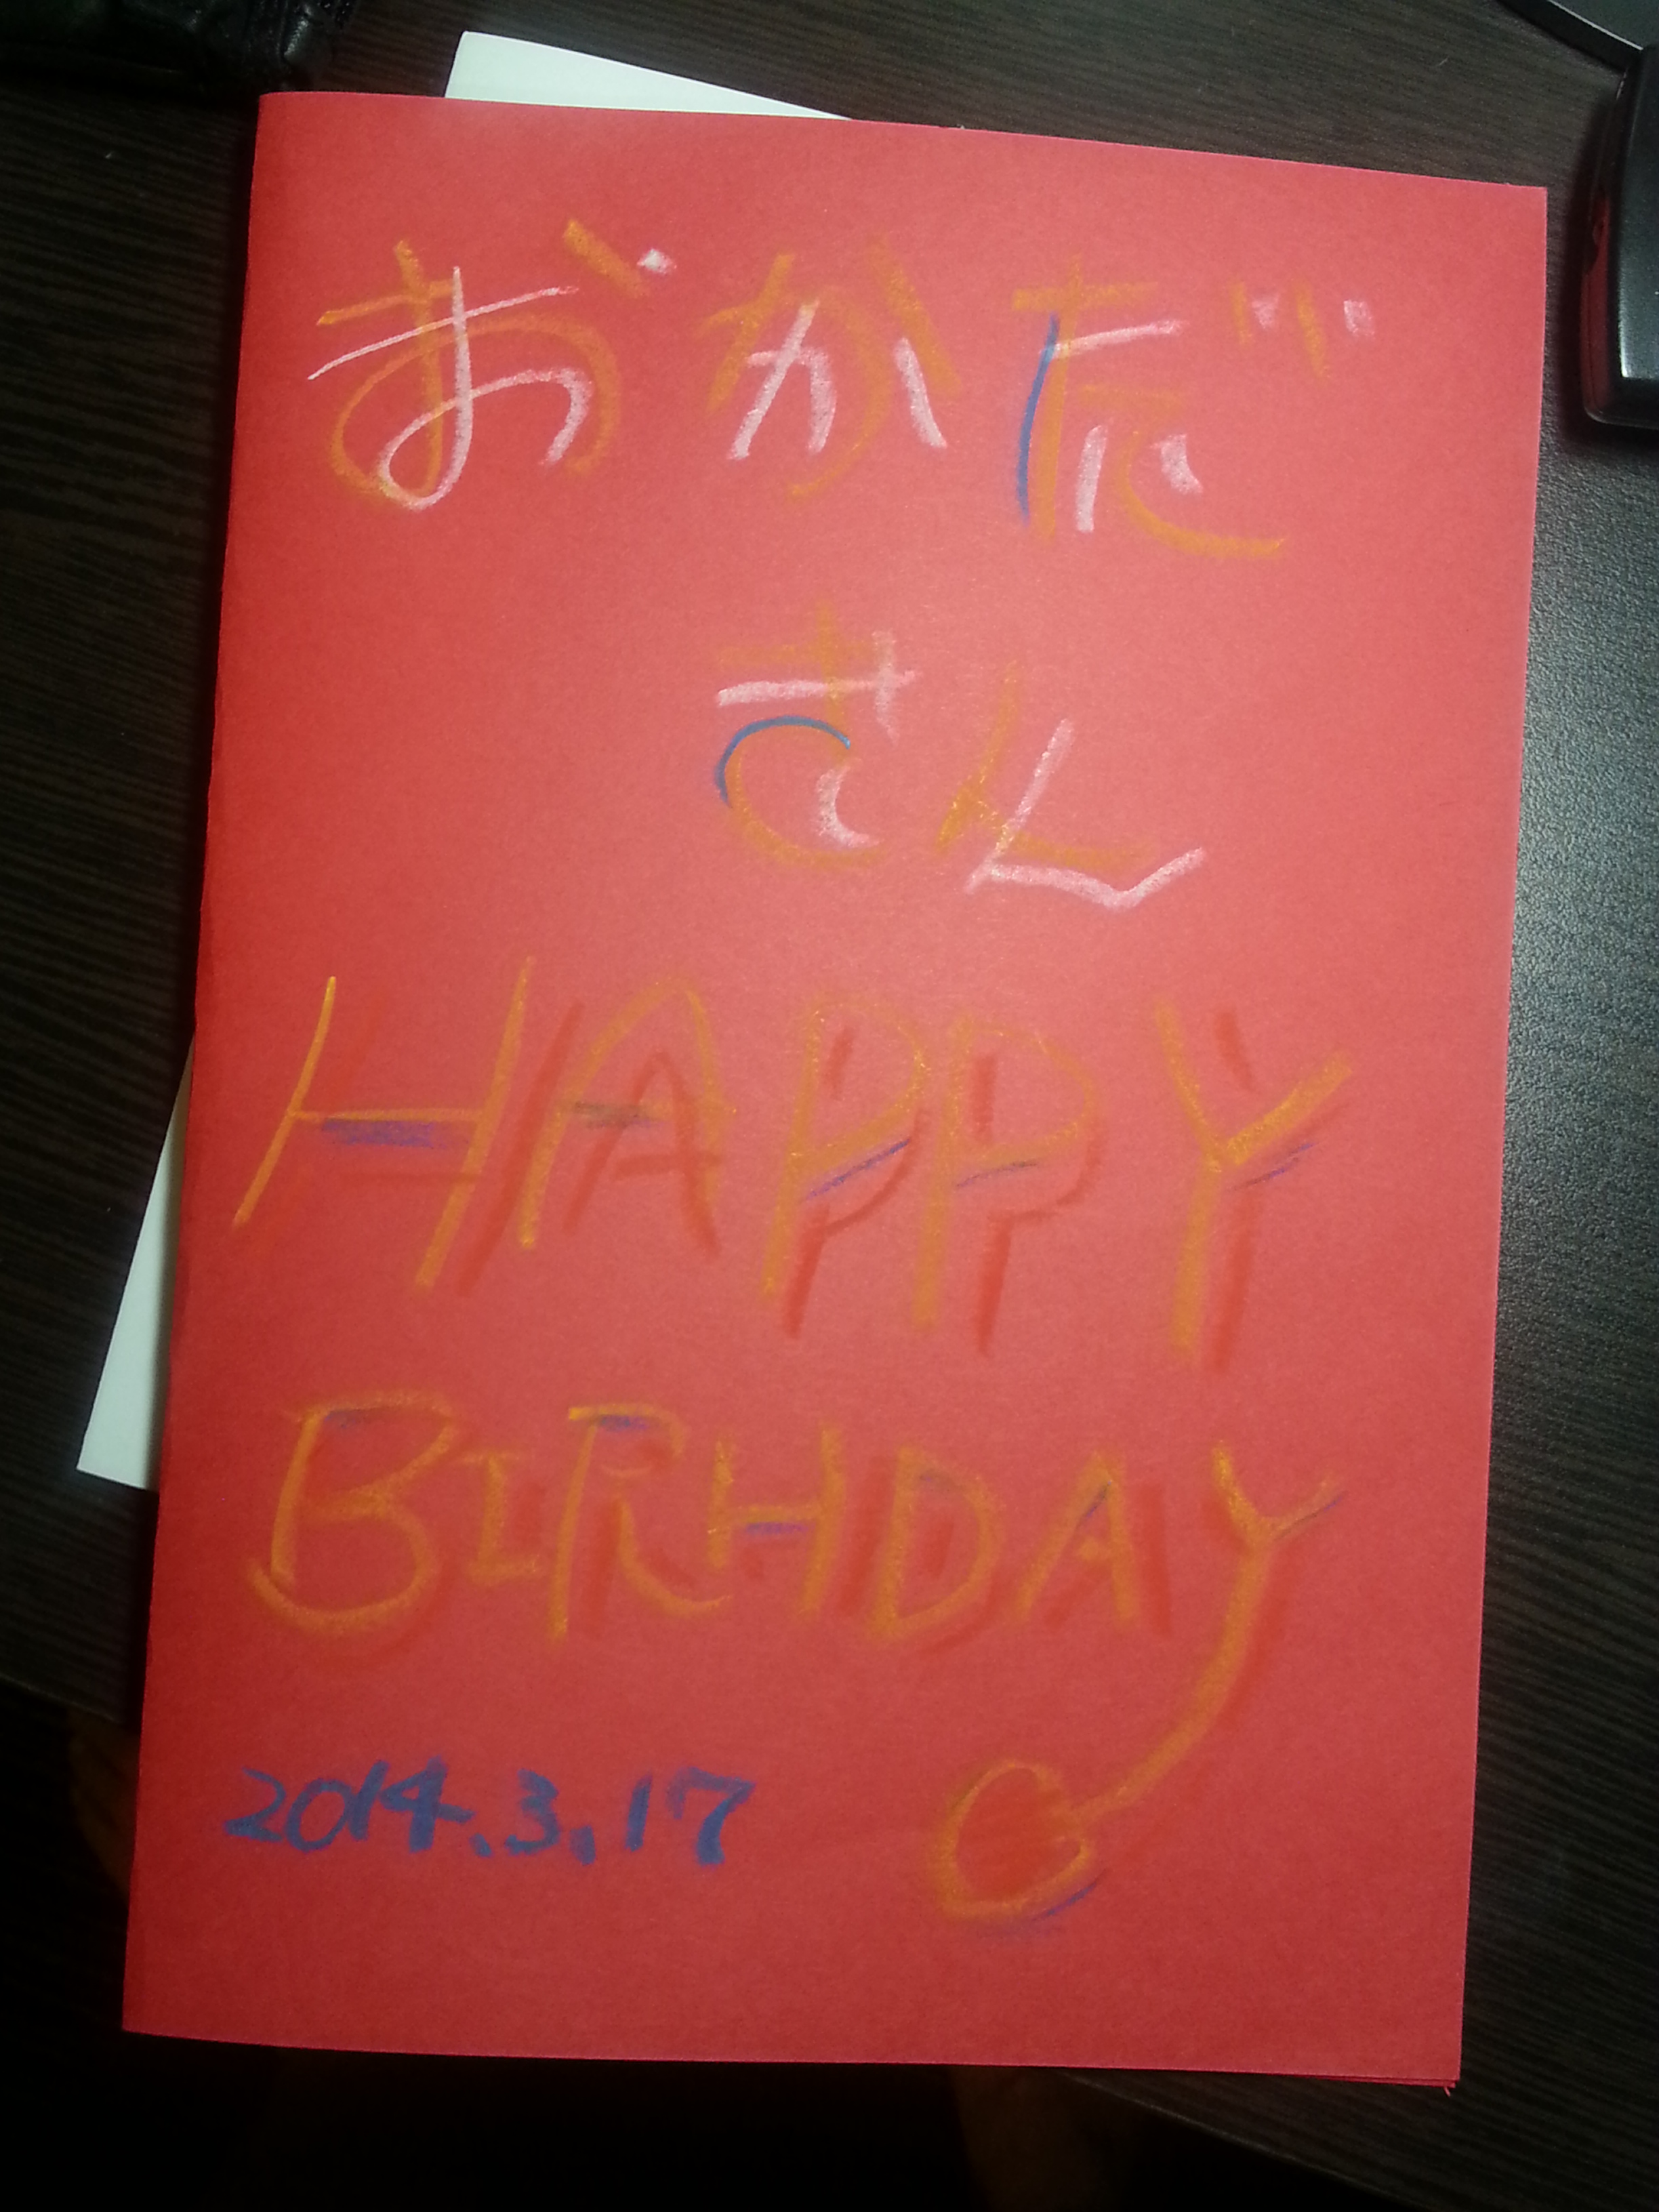 おかだ
さん
HAPPY
BIRHDAY
2014.3.17